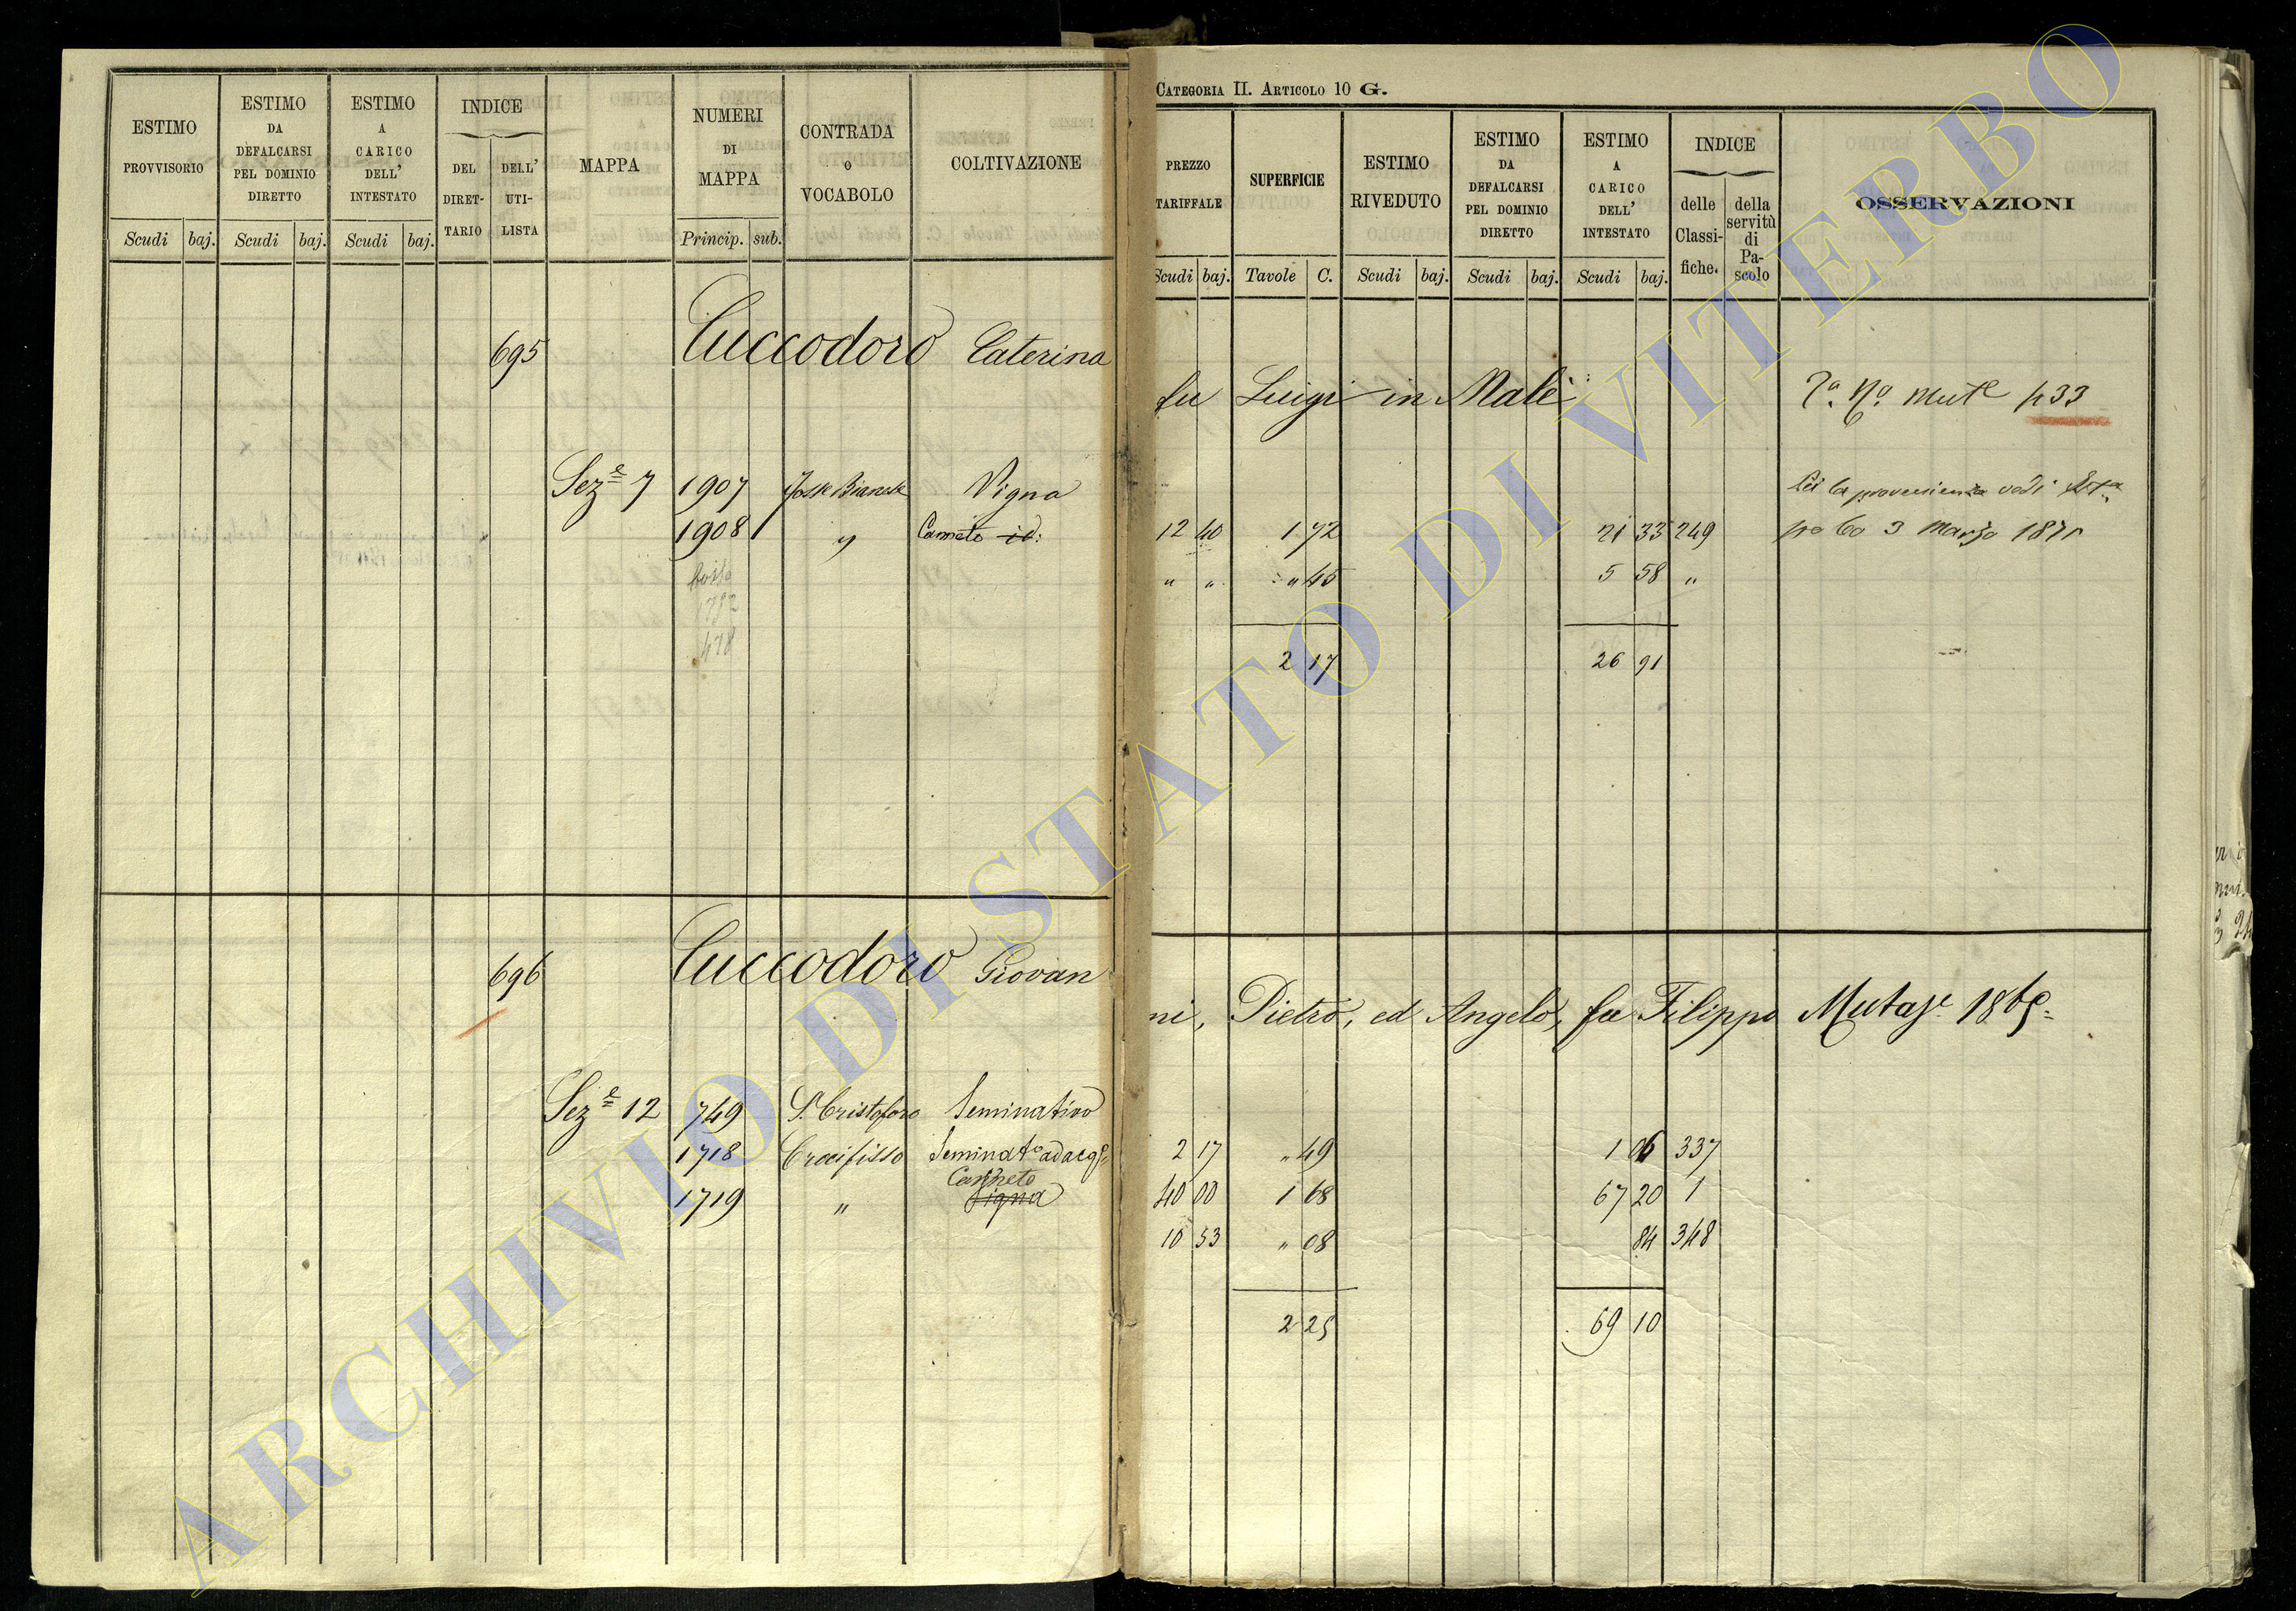 ESTIMO PROVVISORIO
Scudi baj.
ESTIMO DA DEFALCARSI PEL DOMINIO DIRETTO
Scudi baj.
ESTIMO A CARICO DELL' INTESTATO
Scudi baj.
INDICE
DEL DIRET-TARIO
DELL' UTI-LISTA
MAPPA
NUMERI DI MAPPA
Princip. sub.
CONTRADA O VOCABOLO
COLTIVAZIONE
695 Cuccodoro Caterina
Sez.e 7 1907 Vigna
1908 1 " Canneto id:
696 Cuccodoro Giovan
Sez.e 12 749 S. Cristoforo Seminativo
1718 Crocifisso Seminat.o ad acq.
Canneto
1719 " Vigna
CATEGORIA II. ARTICOLO 10 G.
PREZZO TARIFFALE
Scudi baj.
SUPERFICIE
Tavole C.
ESTIMO RIVEDUTO
Scudi baj.
ESTIMO DA DEFALCARSI PEL DOMINIO DIRETTO
Scudi baj.
ESTIMO A CARICO DELL' INTESTATO
Scudi baj.
INDICE
delle Classi-fiche.
della servitù di Pa-scolo
OSSERVAZIONI
fu Luigi in Malè 433
Per la provenienza vedi
12 40 1 72 21 33 249 3 Marzo 1871
" " " 45 5 58 "
2 17 26 91
ni, Pietro, ed Angelo, fu Filippo
2 17 " 49 1 06 337
40 00 1 68 67 20 1
10 53 " 08 84 348
2 25 69 10
ARCHIVIO DI STATO DI VITERBO